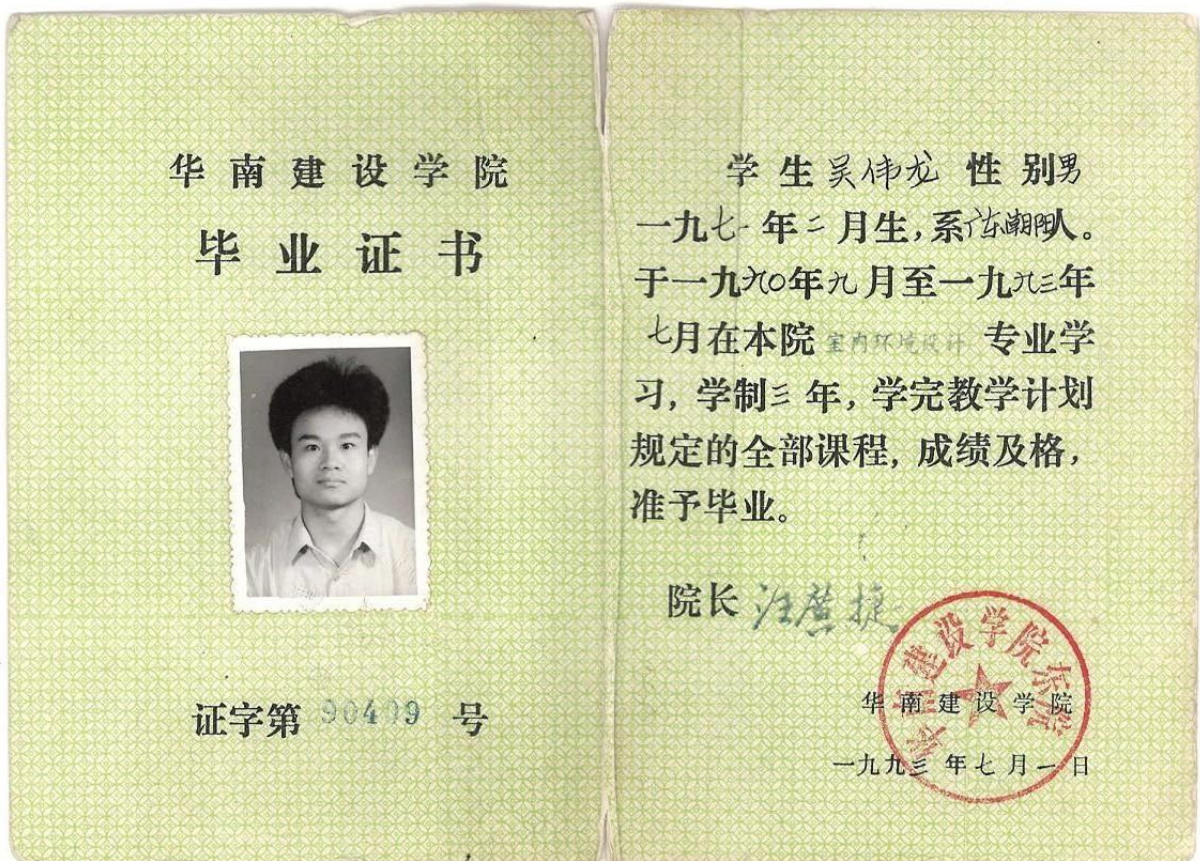 华南建设学院
毕业证书
证字第 90409 号
学生吴伟龙 性别男
一九七一年二月生，系广东潮阳人。
于一九九〇年九月至一九九三年
七月在本院 室内环境设计 专业学
习，学制三年，学完教学计划
规定的全部课程，成绩及格，
准予毕业。
院长 汪广捷
华南建设学院东院
华南建设学院
一九九三年七月一日